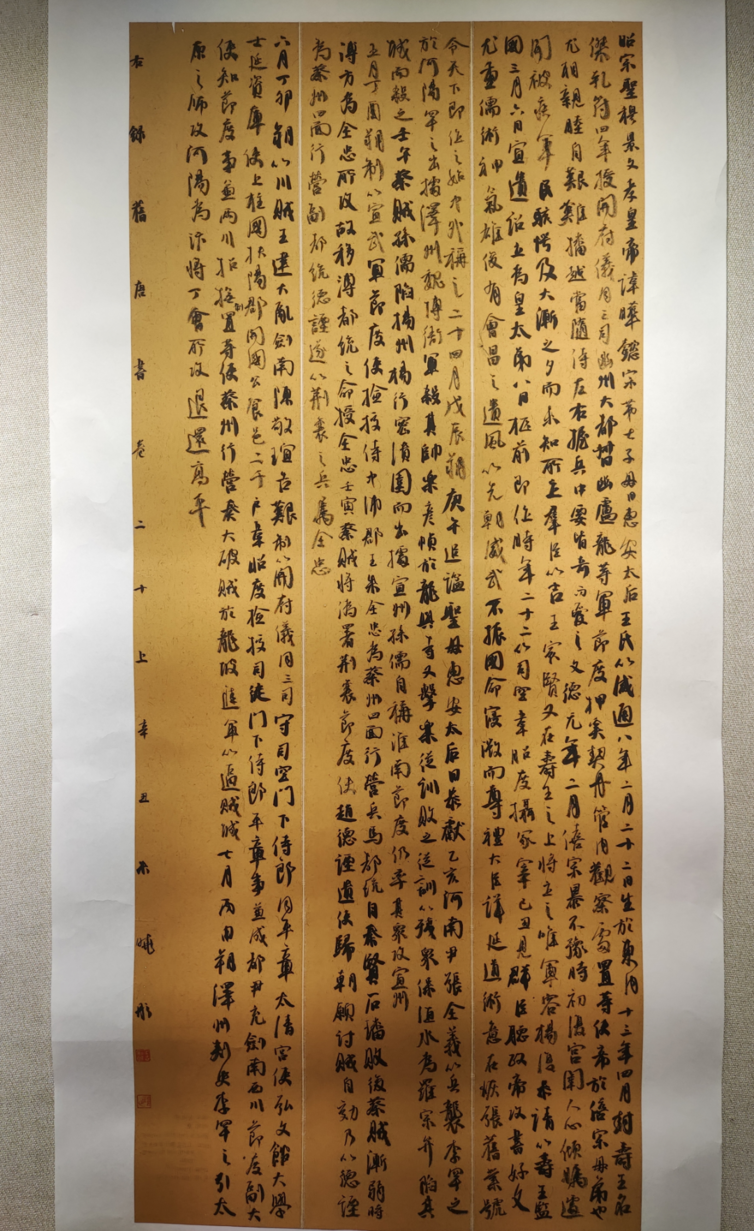 昭宗聖穆景文孝皇帝諱曄懿宗第七子母曰惠安太后王氏以咸通八年二月二十二日生於東內十三年四月封壽王名
傑乾符四年授開府儀同三司幽州大都督幽盧龍等軍節度押奚契丹管內觀察處置等使帝於僖宗母弟也
尤相親睦自艱難播越嘗隨侍左右握兵中要皆奇而愛之文德元年二月僖宗暴不豫時初復宮闕人心傾矚遽
聞被疾軍民駭愕及大漸之夕而未知所立群臣以吉王最賢又在壽王之上將立之唯軍容楊復恭請以壽王監
國三月六日宣遺詔立為皇太弟八日柩前即位時年二十二以司空韋昭度攝冢宰己丑見群臣聽政帝攻書好文
尤重儒術神氣雄俊有會昌之遺風以先朝威武不振國命寖微而尊禮大臣詳延道術意在恢張舊業號
令天下即位之始中外稱之二十四月戊辰朔庚午追謚聖母惠安太后曰恭獻乙亥河南尹張全義以兵襲李罕之
於河陽罕之出據澤州魏博衙軍殺其帥樂彥禎於龍興寺又擊樂從訓敗之從訓以殘眾保洹水為羅宗弁陷其
城而殺之壬午蔡賊孫儒陷揚州楊行密潰圍而出據宣州孫儒自稱淮南節度仍率其眾攻宣州
五月丁酉朔制以宣武軍節度使檢校侍中沛郡王朱全忠為蔡州四面行營兵馬都統自秦賢石璠敗後蔡賊漸弱時
溥方為全忠所攻故移溥都統之命授全忠壬寅蔡賊將偽署荊襄節度使趙德諲遣使歸朝願討賊自効乃以德諲
為蔡州四面行營副都統德諲遂以荊襄之兵屬全忠
六月丁卯朔以川賊王建大亂劍南陳敬瑄告難制以開府儀同三司守司空門下侍郎同平章太清宮使弘文館大學
士延資庫使上柱國扶陽郡開國公食邑二千戶韋昭度檢校司徒門下侍郎平章事兼成都尹充劍南西川節度副大
使知節度事兼兩川招撫制置等使蔡州行營奏大破賊於龍陂進軍以逼賊城七月丙申朔澤州刺史李罕之引太
原之師攻河陽為汴將丁會所攻退還高平
右錄舊唐書卷二十上辛丑朱曉彤